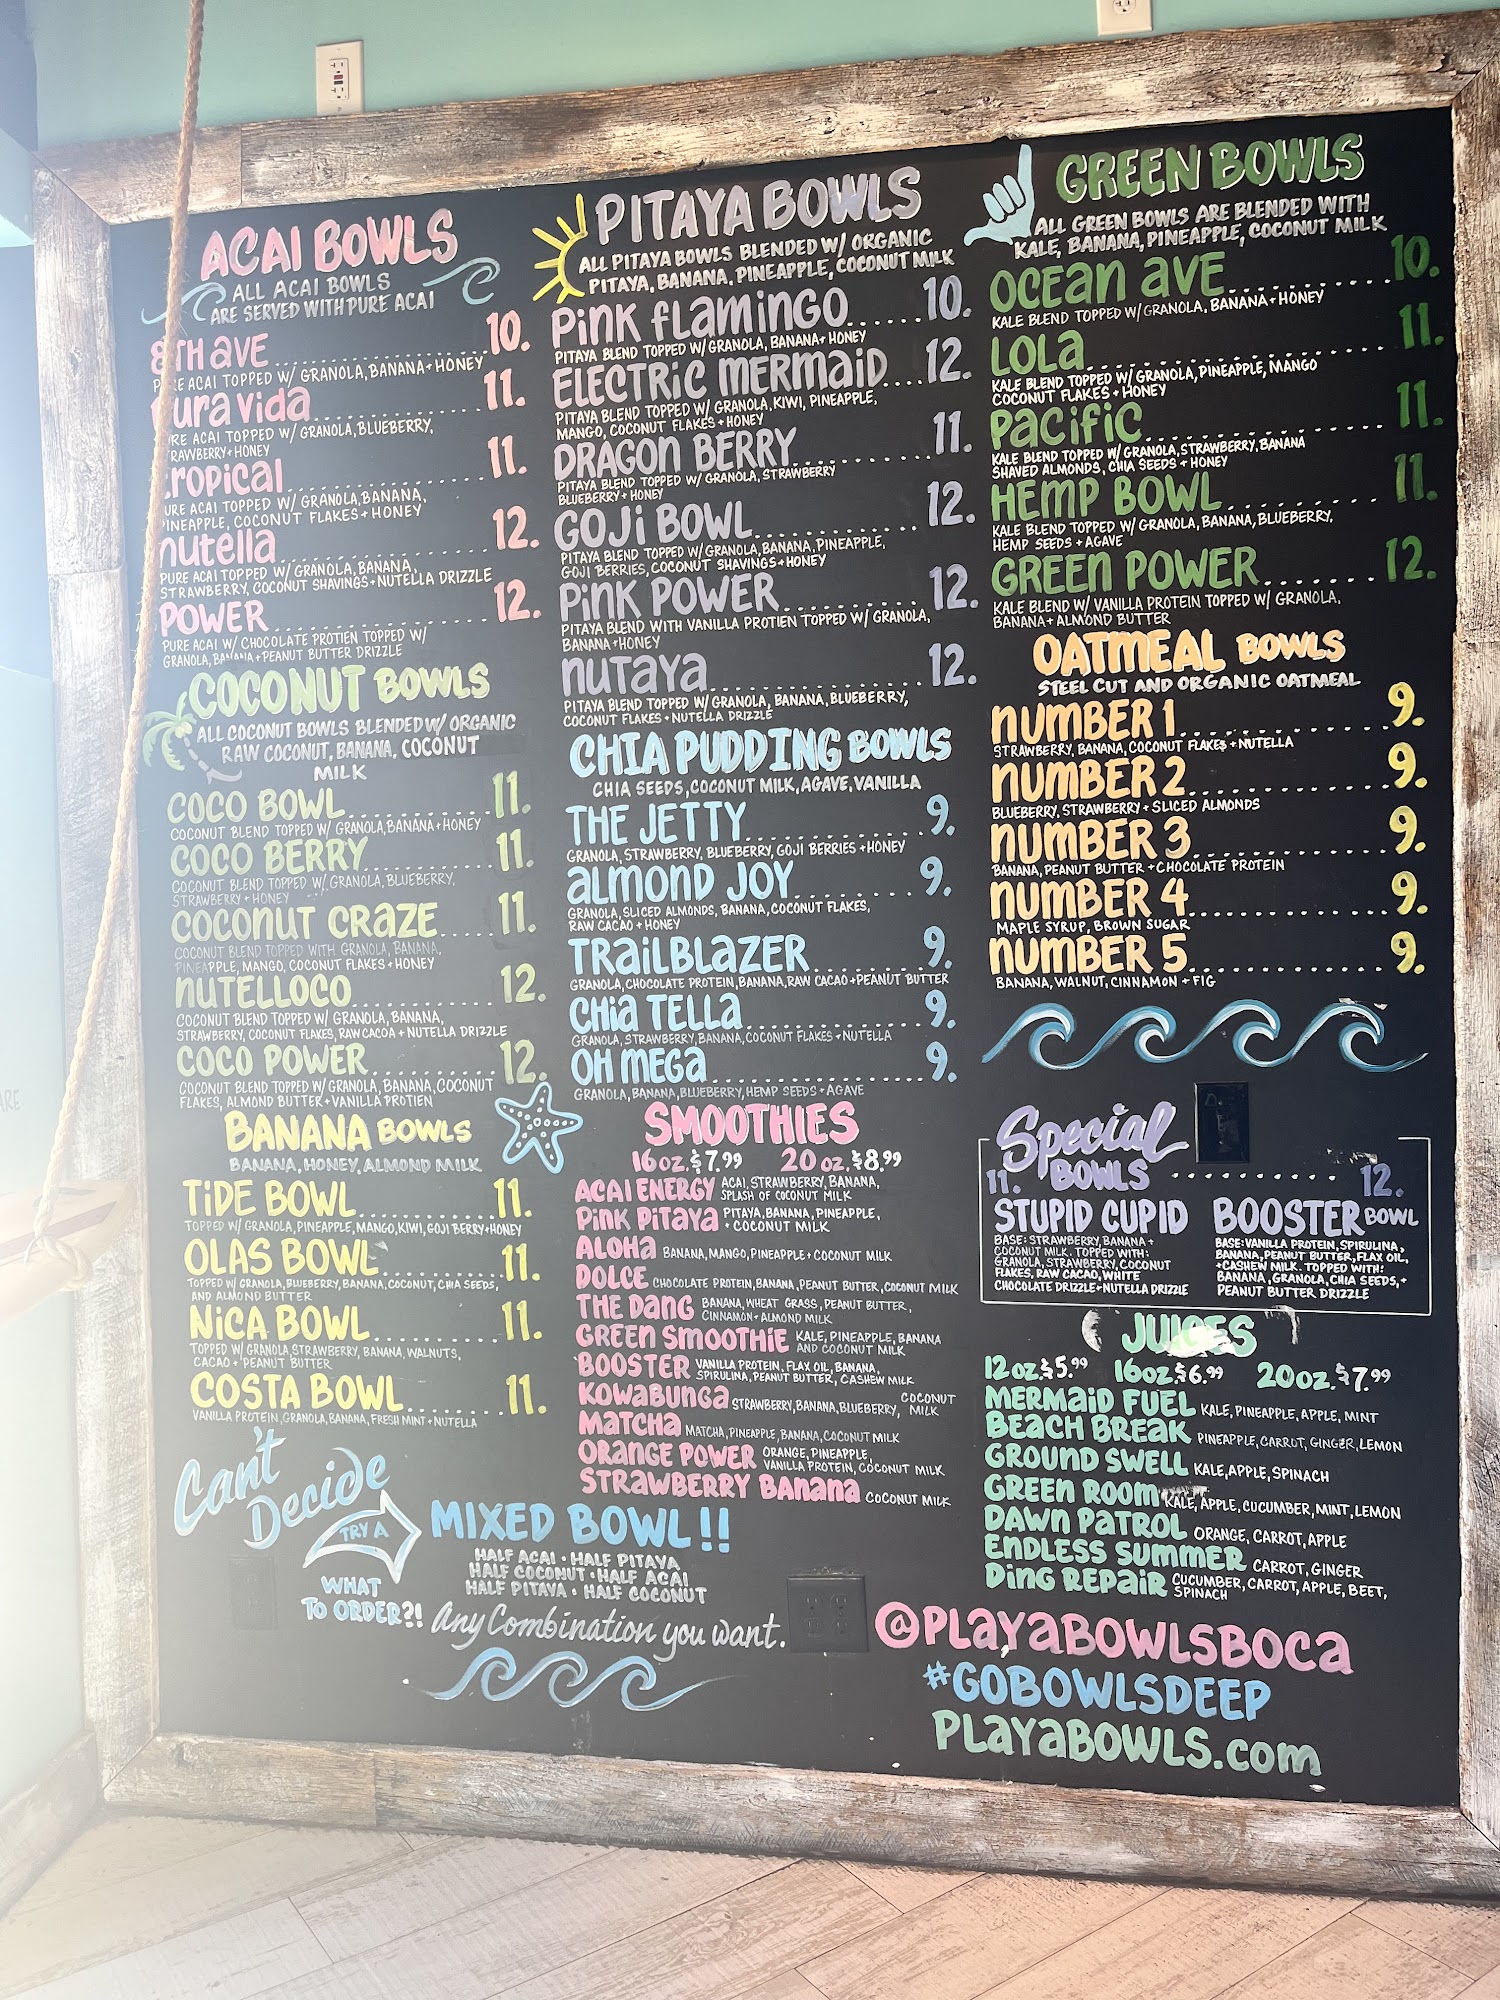 ACAI BOWLS
ALL ACAI BOWLS
ARE SERVED WITH PURE ACAI
8TH AVE 10.
PURE ACAI TOPPED W/ GRANOLA, BANANA + HONEY
PURA VIDA 11.
PURE ACAI TOPPED W/ GRANOLA, BLUEBERRY,
STRAWBERRY + HONEY
TROPICAL 11.
PURE ACAI TOPPED W/ GRANOLA, BANANA,
PINEAPPLE, COCONUT FLAKES + HONEY
NUTELLA 12.
PURE ACAI TOPPED W/ GRANOLA, BANANA,
STRAWBERRY, COCONUT SHAVINGS + NUTELLA DRIZZLE
POWER 12.
PURE ACAI W/ CHOCOLATE PROTIEN TOPPED W/
GRANOLA, BANANA + PEANUT BUTTER DRIZZLE
COCONUT BOWLS
ALL COCONUT BOWLS BLENDED W/ ORGANIC
RAW COCONUT, BANANA, COCONUT
MILK
COCO BOWL 11.
COCONUT BLEND TOPPED W/ GRANOLA, BANANA + HONEY
COCO BERRY 11.
COCONUT BLEND TOPPED W/ GRANOLA, BLUEBERRY,
STRAWBERRY + HONEY
COCONUT CRAZE 11.
COCONUT BLEND TOPPED WITH GRANOLA, BANANA,
PINEAPPLE, MANGO, COCONUT FLAKES + HONEY
NUTELLOCO 12.
COCONUT BLEND TOPPED W/ GRANOLA, BANANA,
STRAWBERRY, COCONUT FLAKES, RAW CACOA + NUTELLA DRIZZLE
COCO POWER 12.
COCONUT BLEND TOPPED W/ GRANOLA, BANANA, COCONUT
FLAKES, ALMOND BUTTER + VANILLA PROTIEN
BANANA BOWLS
BANANA, HONEY, ALMOND MILK
TIDE BOWL 11.
TOPPED W/ GRANOLA, PINEAPPLE, MANGO, KIWI, GOJI BERRY + HONEY
OLAS BOWL 11.
TOPPED W/ GRANOLA, BLUEBERRY, BANANA, COCONUT, CHIA SEEDS,
AND ALMOND BUTTER
NICA BOWL 11.
TOPPED W/ GRANOLA, STRAWBERRY, BANANA, WALNUTS,
CACAO + PEANUT BUTTER
COSTA BOWL 11.
VANILLA PROTEIN, GRANOLA, BANANA, FRESH MINT + NUTELLA
Can't
Decide
TRY A
WHAT
TO ORDER?!
MIXED BOWL!!
HALF ACAI · HALF PITAYA
HALF COCONUT · HALF ACAI
HALF PITAYA · HALF COCONUT
Any Combination you want.
PITAYA BOWLS
ALL PITAYA BOWLS BLENDED W/ ORGANIC
PITAYA, BANANA, PINEAPPLE, COCONUT MILK
PINK FLAMINGO 10.
PITAYA BLEND TOPPED W/ GRANOLA, BANANA + HONEY
ELECTRIC MERMAID 12.
PITAYA BLEND TOPPED W/ GRANOLA, KIWI, PINEAPPLE,
MANGO, COCONUT FLAKES + HONEY
DRAGON BERRY 11.
PITAYA BLEND TOPPED W/ GRANOLA, STRAWBERRY
BLUEBERRY + HONEY
GOJI BOWL 12.
PITAYA BLEND TOPPED W/ GRANOLA, BANANA, PINEAPPLE,
GOJI BERRIES, COCONUT SHAVINGS + HONEY
PINK POWER 12.
PITAYA BLEND WITH VANILLA PROTIEN TOPPED W/ GRANOLA,
BANANA + HONEY
NUTAYA 12.
PITAYA BLEND TOPPED W/ GRANOLA, BANANA, BLUEBERRY,
COCONUT FLAKES + NUTELLA DRIZZLE
CHIA PUDDING BOWLS
CHIA SEEDS, COCONUT MILK, AGAVE, VANILLA
THE JETTY 9.
GRANOLA, STRAWBERRY, BLUEBERRY, GOJI BERRIES + HONEY
ALMOND JOY 9.
GRANOLA, SLICED ALMONDS, BANANA, COCONUT FLAKES,
RAW CACAO + HONEY
TRAILBLAZER 9.
GRANOLA, CHOCOLATE PROTEIN, BANANA, RAW CACAO + PEANUT BUTTER
CHIA TELLA 9.
GRANOLA, STRAWBERRY, BANANA, COCONUT FLAKES + NUTELLA
OH MEGA 9.
GRANOLA, BANANA, BLUEBERRY, HEMP SEEDS + AGAVE
SMOOTHIES
16 oz. $7.99 20 oz. $8.99
ACAI ENERGY ACAI, STRAWBERRY, BANANA,
SPLASH OF COCONUT MILK
PINK PITAYA PITAYA, BANANA, PINEAPPLE,
+ COCONUT MILK
ALOHA BANANA, MANGO, PINEAPPLE + COCONUT MILK
DOLCE CHOCOLATE PROTEIN, BANANA, PEANUT BUTTER, COCONUT MILK
THE DANG BANANA, WHEAT GRASS, PEANUT BUTTER,
CINNAMON + ALMOND MILK
GREEN SMOOTHIE KALE, PINEAPPLE, BANANA
AND COCONUT MILK
BOOSTER VANILLA PROTEIN, FLAX OIL, BANANA,
SPIRULINA, PEANUT BUTTER, CASHEW MILK
KOWABUNGA STRAWBERRY, BANANA, BLUEBERRY, COCONUT
MILK
MATCHA MATCHA, PINEAPPLE, BANANA, COCONUT MILK
ORANGE POWER ORANGE, PINEAPPLE,
VANILLA PROTEIN, COCONUT MILK
STRAWBERRY BANANA COCONUT MILK
GREEN BOWLS
ALL GREEN BOWLS ARE BLENDED WITH
KALE, BANANA, PINEAPPLE, COCONUT MILK
OCEAN AVE 10.
KALE BLEND TOPPED W/ GRANOLA, BANANA + HONEY
LOLA 11.
KALE BLEND TOPPED W/ GRANOLA, PINEAPPLE, MANGO
COCONUT FLAKES + HONEY
PACIFIC 11.
KALE BLEND TOPPED W/ GRANOLA, STRAWBERRY, BANANA
SHAVED ALMONDS, CHIA SEEDS + HONEY
HEMP BOWL 11.
KALE BLEND TOPPED W/ GRANOLA, BANANA, BLUEBERRY,
HEMP SEEDS + AGAVE
GREEN POWER 12.
KALE BLEND W/ VANILLA PROTEIN TOPPED W/ GRANOLA,
BANANA + ALMOND BUTTER
OATMEAL BOWLS
STEEL CUT AND ORGANIC OATMEAL
NUMBER 1 9.
STRAWBERRY, BANANA, COCONUT FLAKES + NUTELLA
NUMBER 2 9.
BLUEBERRY, STRAWBERRY + SLICED ALMONDS
NUMBER 3 9.
BANANA, PEANUT BUTTER + CHOCOLATE PROTEIN
NUMBER 4 9.
MAPLE SYRUP, BROWN SUGAR
NUMBER 5 9.
BANANA, WALNUT, CINNAMON + FIG
Special
BOWLS
11. 12.
STUPID CUPID
BASE: STRAWBERRY, BANANA +
COCONUT MILK. TOPPED WITH:
GRANOLA, STRAWBERRY, COCONUT
FLAKES, RAW CACAO, WHITE
CHOCOLATE DRIZZLE + NUTELLA DRIZZLE
BOOSTER BOWL
BASE: VANILLA PROTEIN, SPIRULINA,
BANANA, PEANUT BUTTER, FLAX OIL,
+ CASHEW MILK. TOPPED WITH:
BANANA, GRANOLA, CHIA SEEDS, +
PEANUT BUTTER DRIZZLE
JUICES
12 oz. $5.99 16 oz. $6.99 20 oz. $7.99
MERMAID FUEL KALE, PINEAPPLE, APPLE, MINT
BEACH BREAK PINEAPPLE, CARROT, GINGER, LEMON
GROUND SWELL KALE, APPLE, SPINACH
GREEN ROOM KALE, APPLE, CUCUMBER, MINT, LEMON
DAWN PATROL ORANGE, CARROT, APPLE
ENDLESS SUMMER CARROT, GINGER
DING REPAIR CUCUMBER, CARROT, APPLE, BEET,
SPINACH
@PLAYABOWLSBOCA
#GOBOWLSDEEP
PLAYABOWLS.COM